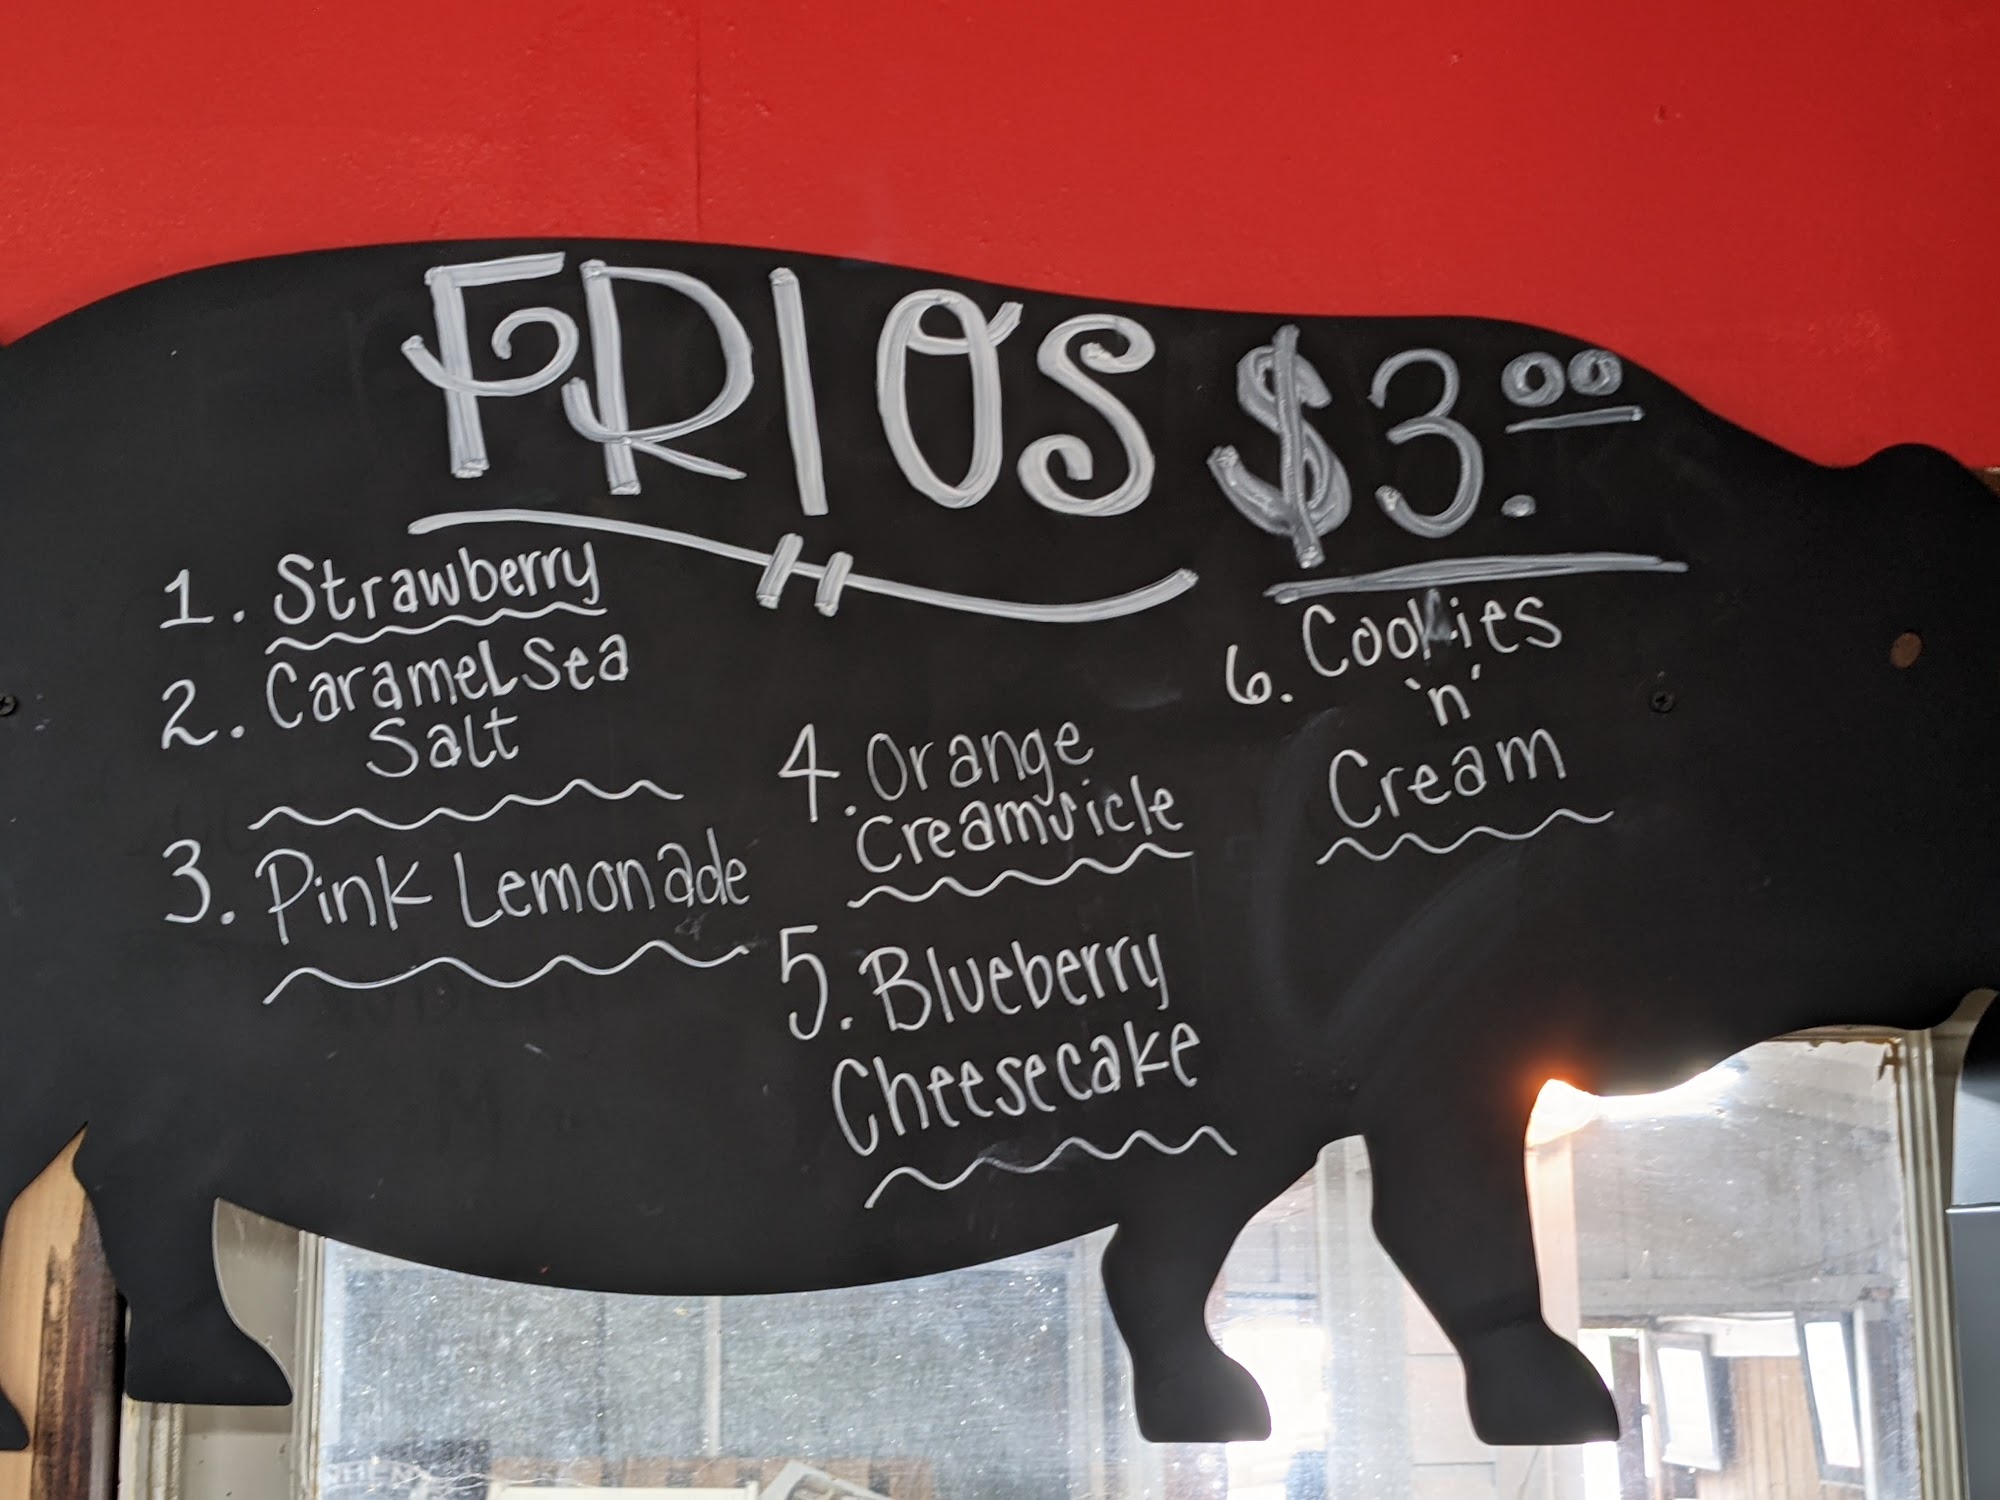 FRIOS $3.00
1. Strawberry
2. Caramel Sea
Salt
3. Pink Lemonade
4. Orange
Creamsicle
5. Blueberry
Cheesecake
6. Cookies
'n'
Cream